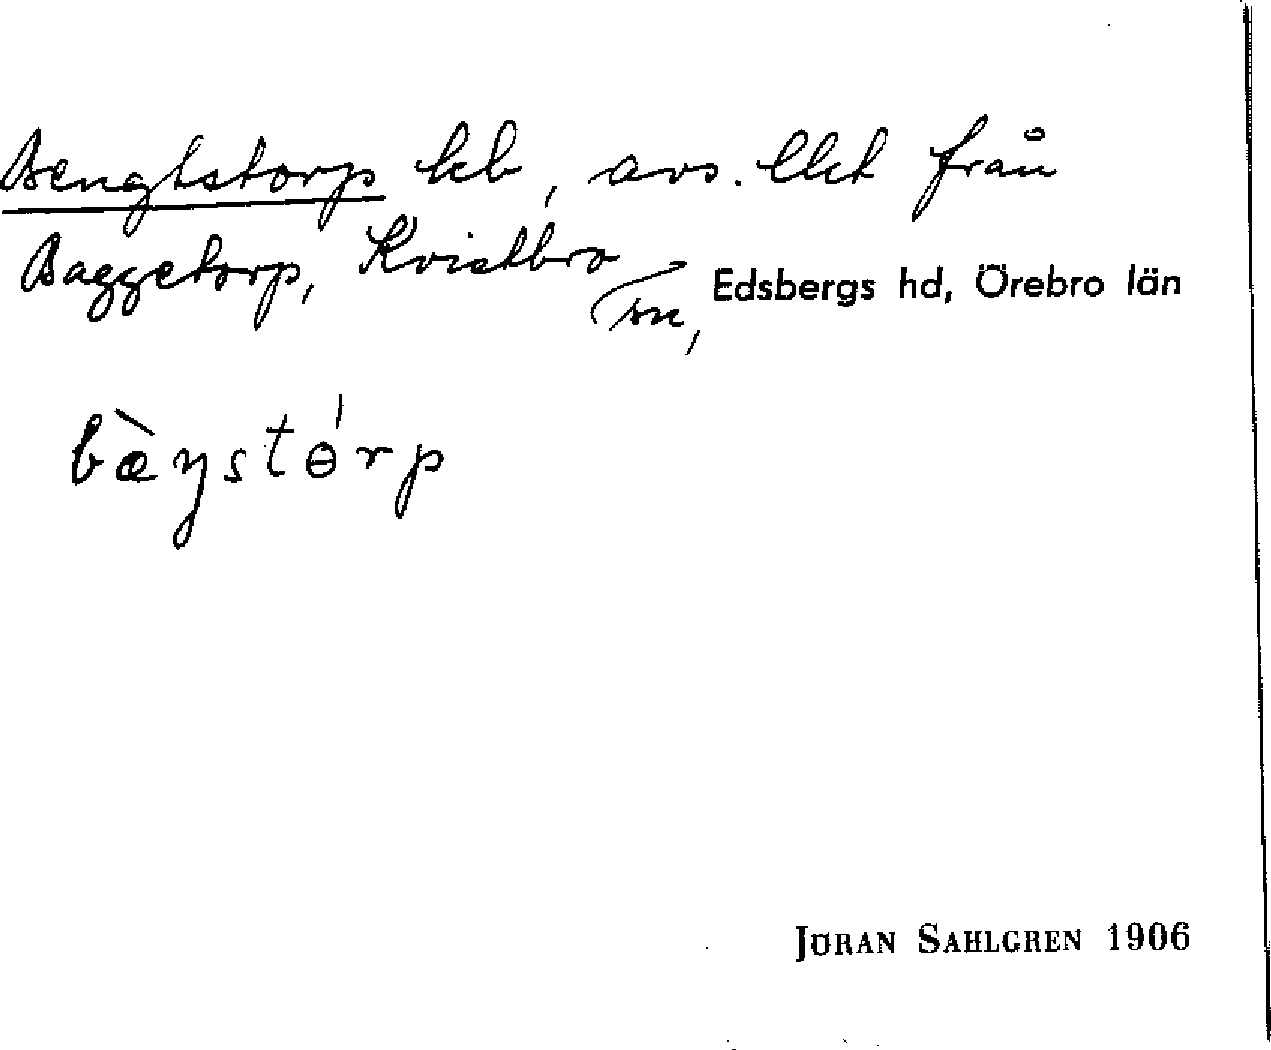 Bengtstorp lb, avs. Uct från
Baggetorp, Kvistbro
sn, Edsbergs hd, Örebro län
bæ̀ŋstɵ́rp
JÖRAN SAHLGREN 1906